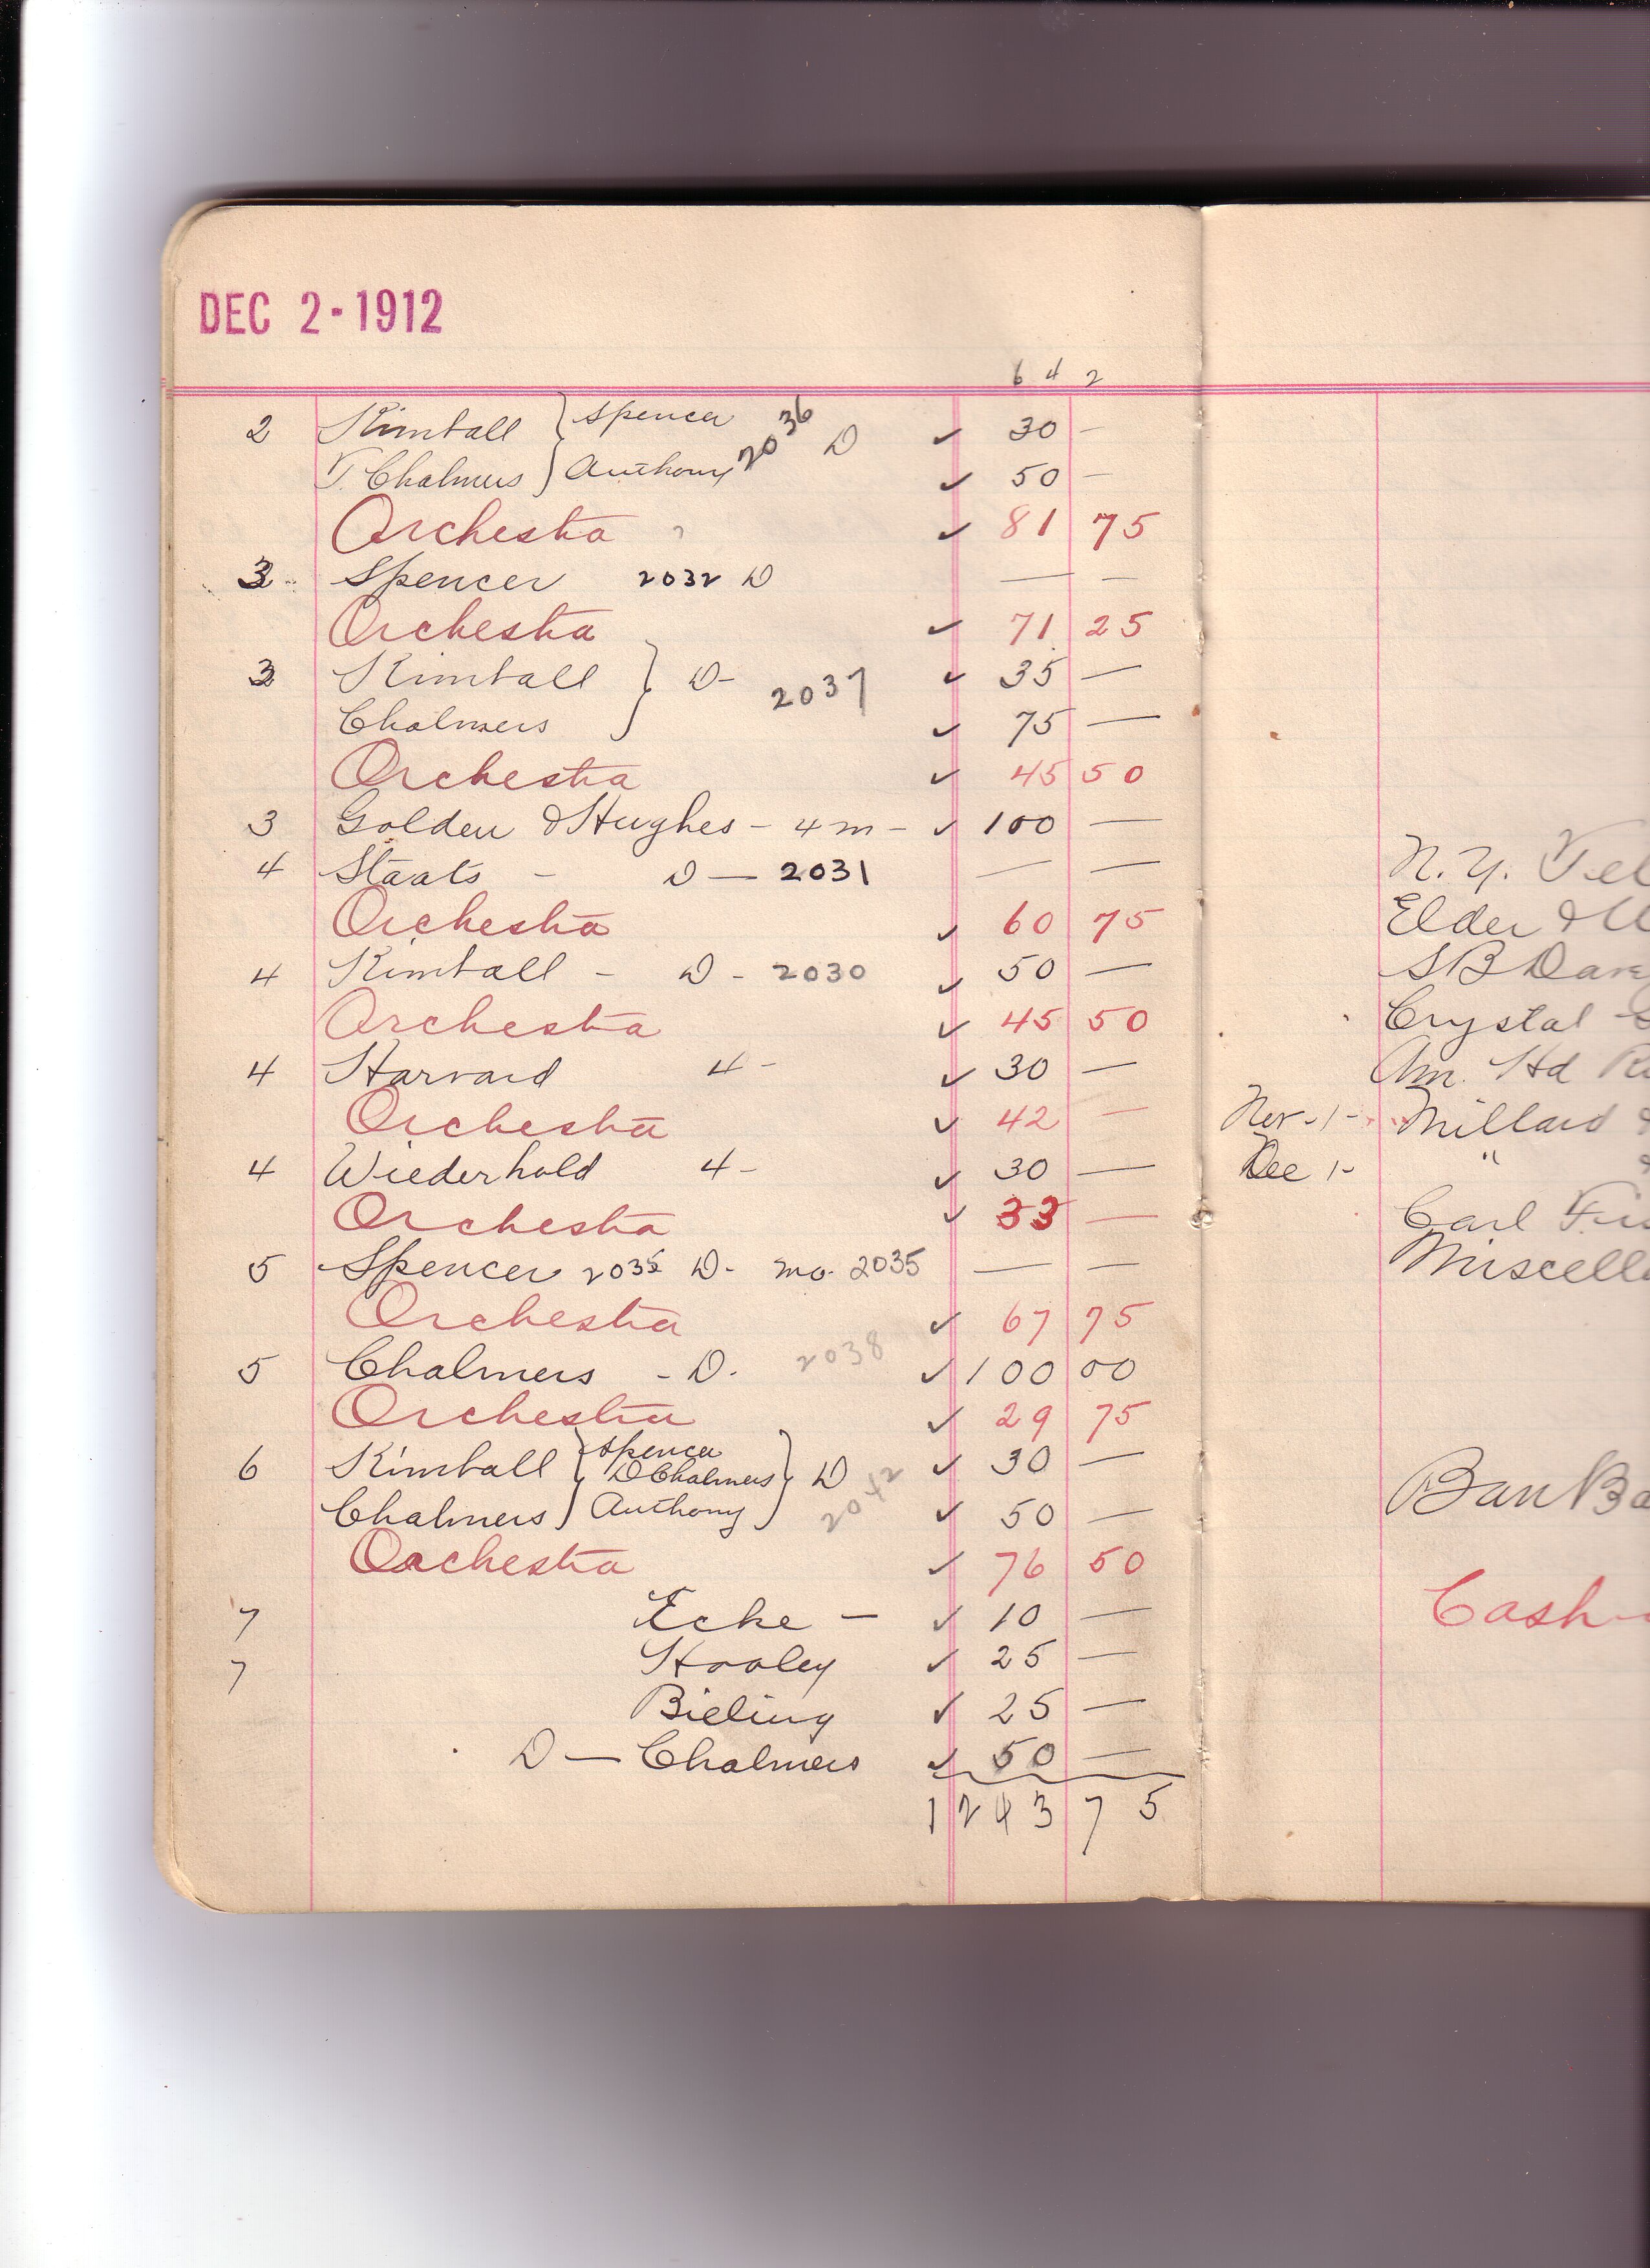 DEC 2-1912
6 4 2
2 Kimball } Spencer 2036 D ✓ 30 —
T. Chalmers } Anthony ✓ 50 —
Orchestra ✓ 81 75
3 Spencer 2032 D — —
Orchestra ✓ 71 25
3 Kimball } D- 2037 ✓ 35 —
Chalmers } ✓ 75 —
Orchestra ✓ 45 50
3 Golden & Hughes - 4 m - ✓ 100 —
4 Staats - D — 2031 — —
Orchestra ✓ 60 75
4 Kimball - D - 2030 ✓ 50 —
Orchestra ✓ 45 50
4 Harvard 4- ✓ 30 —
Orchestra ✓ 42 —
4 Wiederhold 4- ✓ 30 —
Orchestra ✓ 33 —
5 Spencer 2035 D. mo. 2035 — —
Orchestra ✓ 67 75
5 Chalmers - D. 2038 ✓ 100 00
Orchestra ✓ 29 75
6 Kimball { Spencer ✓ 30 —
D Chalmers } D 2042
Chalmers } Anthony ✓ 50 —
Orchestra ✓ 76 50
7 Ecke — ✓ 10 —
7 Hooley ✓ 25 —
Bieling ✓ 25 —
D — Chalmers ✓ 50 —
1243 75
N. Y. Tel
Elder &
S B Dave
Crystal
Am. Hd
Nov - 1 - Millard &
Dec 1- "
Carl Fis
Miscell
Ban Ba
Cash